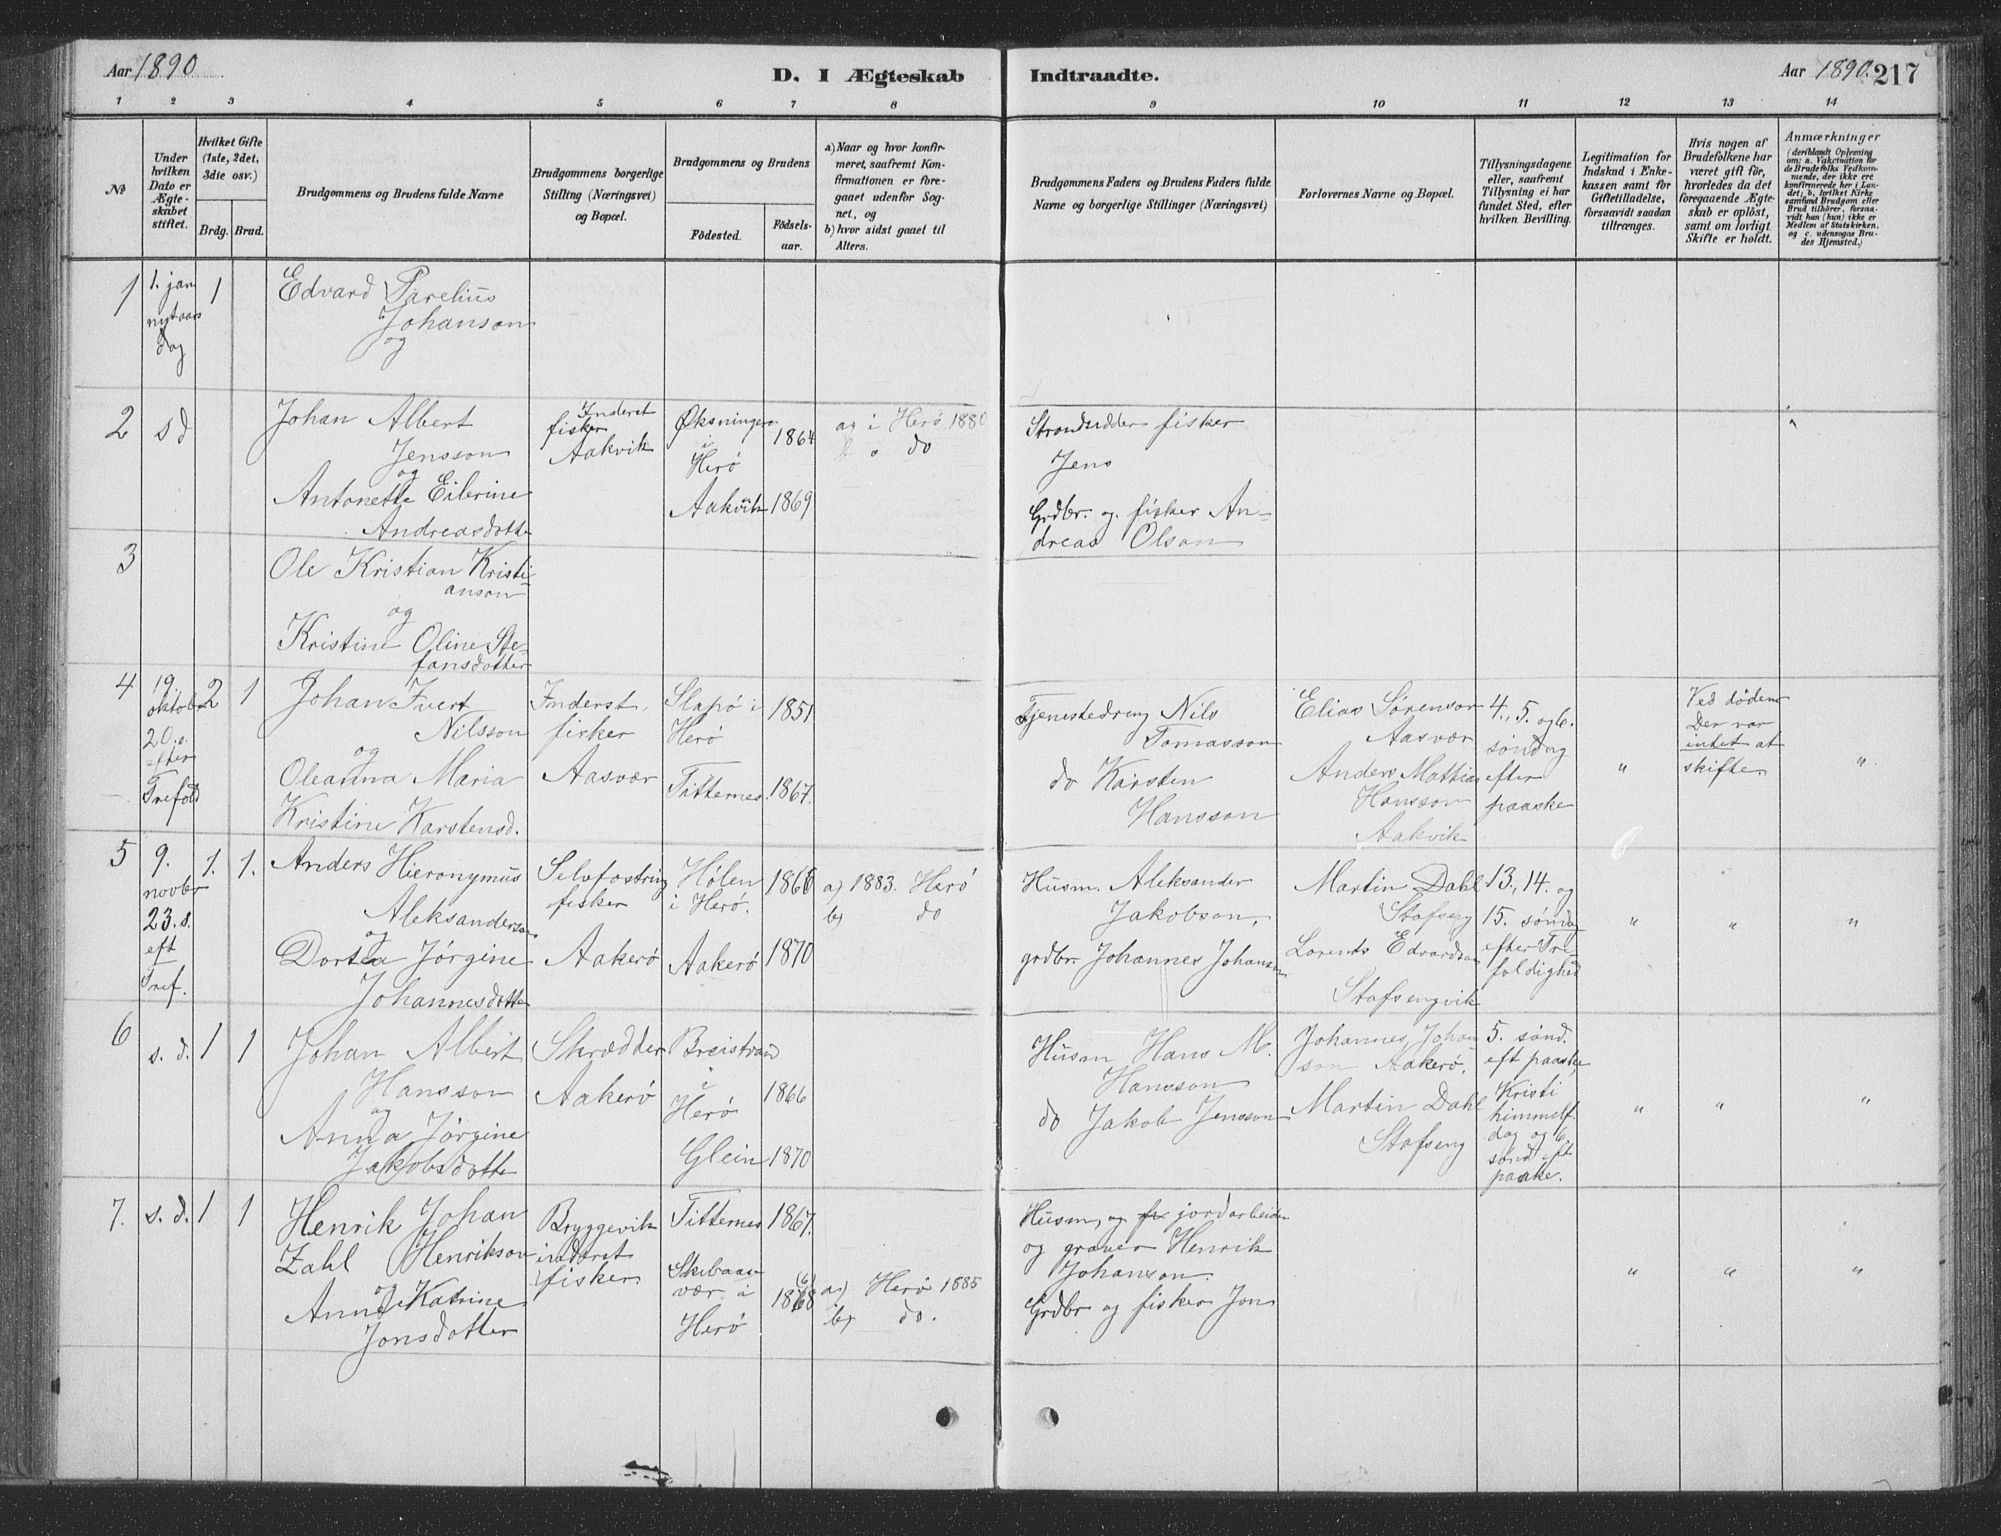 Aar 1890
D. I Ægteskab Indtraadte.
Aar 1890. 217
1 2 3 4 5 6 7 8 9 10 11 12 13 14
No
Under hvilken Dato er Ægteskabet stiftet.
Hvilket Gifte (1ste, 2det, 3die osv.)
Brdg. Brud.
Brudgommens og Brudens fulde Navne
Brudgommens borgerlige Stilling (Næringsvei) og Bopæl.
Brudgommens og Brudens
Födested.
Födselsaar.
a) Naar og hvor konfirmeret, saafremt Konfirmationen er foregaaet udenfor Sognet, og
b) hvor sidst gaaet til Alters.
Brudgommens Faders og Brudens Faders fulde Navne og borgerlige Stillinger (Næringsvei)
Forlovernes Navne og Bopæl.
Tillysningsdagene eller, saafremt Tillysning ei har fundet Sted, efter hvilken Bevilling.
Legitimation for Indskud i Enkekassen samt for Giftetilladelse, forsaavidt saadan tiltrænges.
Hvis nogen af Brudefolkene har været gift för, hvorledes da det foregaaende Ægteskab er oplöst, samt om lovligt Skifte er holdt.
Anmærkninger (deriblandt Oplysning om: a. Vakcination for de Brudefolks Vedkommende, der ikke ere konfirmerede her i Landet; b. hvilket Kirkesamfund Brudgom eller Brud tilhörer, forsaavidt han (hun) ikke er Medlem af Statskirken, og c. udensogns Brudes Hjemsted.)
1
1. jan
nytaars
dag
1
Edvard Parelius
Johanson
og
2
s d
Johan Albert
Jensson
og
Antonette Eilerine
Andreasdotte
Inderst
fisker
Aakvik
Øksningen
i
Herö
Aakvik
1864
1869
a) i Herö 1880
b " do
Strandsidder fisker
Jens
Grdbr. og fisker An-
dreas Olson
3
Ole Kristian Kristi-
anson
og
Kristine Oline Ste-
fansdotter
4
19
oktober
20. s.
efter
Trefold
2 1
Johan Ivert
Nilsson
og
Oleanna Maria
Kristine Karstensd.
Inderst,
fisker
Aasvær
Slapö i
Herö
Titternes
1851
1867.
Tjenestedreng Nils
Tomasson
do Karsten
Hansson
Elias Sörenson
Aasvær
Anders Mathias
Hansson
Aakvik
4., 5. og 6.
söndag
efter
paaske
"
Ved döden
Der var
intet at
skifte.
"
5
9.
novbr
23. s.
eft
Tref.
1. 1.
Anders Hieronymus
Aleksanderson
og
Dortea Jörgine
Johannesdotte
Selvfostring
fisker
Aakerö
Hölen
i Herö.
Aakerö
1866
1870
a) 1883. Herö
b) do
Husm. Aleksander
Jakobson,
grdbr. Johannes Johanson
Martin Dahl
Stafseng
Lorents Edvardson
Stafsengvik
13., 14. og
15. söndag
efter Tre-
foldighed
" " "
6
s. d.
1 1
Johan Albert
Hansson
og
Anna Jörgine
Jakobsdotte
Skrædder
Aakerö
Breistrand
i
Herö
Glein
1866
1870
Husm Hans M.
Hansson
do Jakob Jensson
Johannes Johan
son Aakerö.
Martin Dahl
Stafseng
5. sönd.
eft paaske
Kristi
himmelf.
dag og 6
sönd eft
paaske.
" " "
7.
s. d.
1 1
Henrik Johan
Zahl Henrikson
og
Anne Katrine
Jonsdotter
Bryggevik
inderst
fisker
Titternes
Skibaas-
vær i
Herö
1867.
(6)
1868
a) Herö 1885
b) do.
Husm, og jordarbeider
og graver Henrik
Johanson.
Grdbr og fisker Jon
" " "